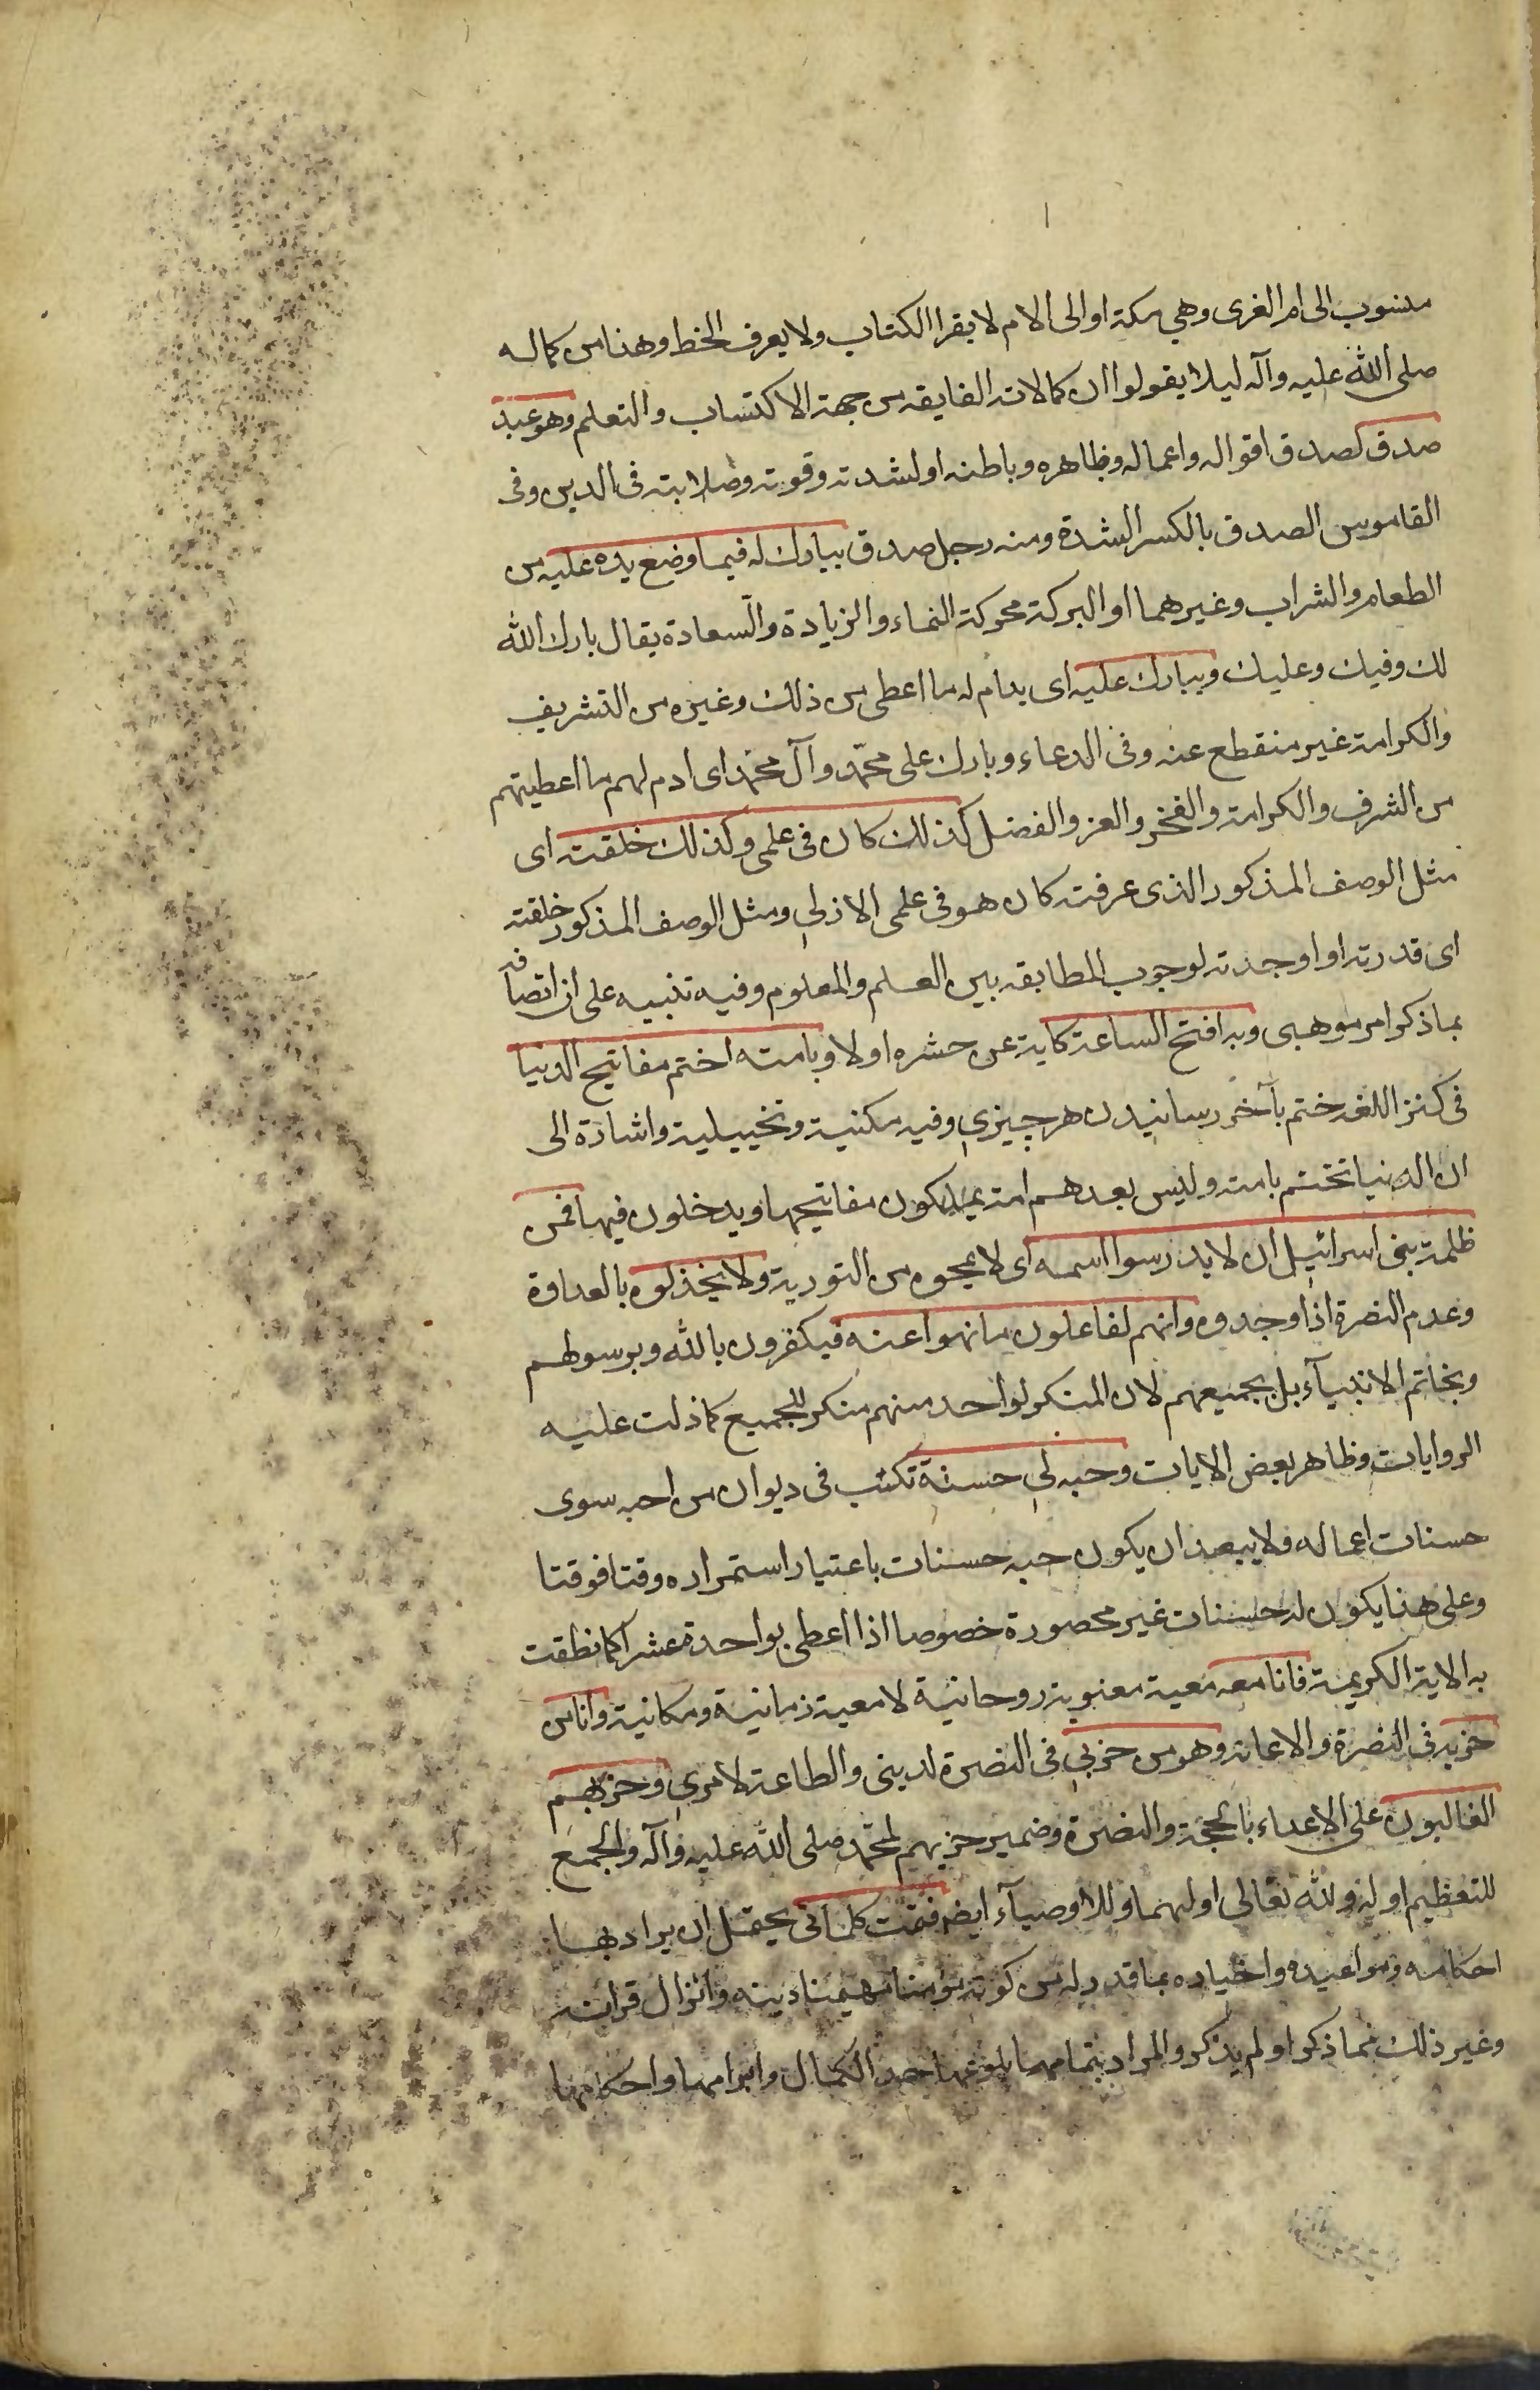 منسوب الى ام القرى وهي مكة او الى الام لا يقرا الكتاب ولا يعرف الخط وهذا من كماله
صلى الله عليه وآله ليلا يقولوا ان كمالاته الفايقه من جهة الاكتساب والتعلم وهو عبد
صدق لصدق اقواله واعماله وظاهره وباطنه او لشدته وقوته وصلابته فى الدين وفى
القاموس الصدق بالكسر الشدة ومنه رجل صدق يبارك له فيما وضع يده عليه من
الطعام والشراب وغيرهما او البركة محركة النماء والزيادة والسعادة يقال بارك الله
لك وفيك وعليك ويبارك عليه اى يدام له ما اعطى من ذلك وغيره من التشريف
والكرامة غير منقطع عنه وفى الدعاء وبارك على محمّد وآل محمّد اى ادم لهم ما اعطيتهم
من الشرف والكرامة والفخر والعز والفضل كذلك كان فى علمى وكذلك خلقته اى
مثل الوصف المذكور الذى عرفته كان هو فى علمى الازلي ومثل الوصف المذكور خلقته
اى قدرته او اوجدته لوجوب المطابقه بين العلم والمعلوم وفيه تنبيه على ان اتصافه
بما ذكر امر موهبى وبه افتح الساعة كناية عن حشره اولا وبامته اختم مفاتيح الدنيا
فى كنز اللغه ختم بآخر رسانيدن هر چيزي وفيه مكنية وتخييلية واشارة الى
ان الدنيا تختتم بامته وليس بعدهم امة يملكون مفاتيحها ويدخلون فيها فمر
ظلمة بنى اسرائيل ان لا يدرسوا اسمه اى لا يمحوه من التورية ولا يخذلوه بالعداوة
وعدم النصرة اذا وجدوه وانهم لفاعلون ما نهوا عنه فيكفرون بالله وبرسولهم
وبخاتم الانبيآء بل بجميعهم لان المنكر لواحد منهم منكر للجميع كما دلت عليه
الروايات وظاهر بعض الايات وحبه لي حسنة تكتب فى ديوان من احبه سوى
حسنات اعماله ولا يبعد ان يكون حبه حسنات باعتبار استمراره وقتا فوقتا
وعلى هذا يكون له حسنات غير محصورة خصوصا اذا اعطى بواحدة عشرا كما نطقت
به الاية الكريمة فانا معه معية معنوية روحانية لا معية زمانية ومكانية وانا من
حزبه فى النصرة والاعانة وهو من حزبي فى النصرة لدينى والطاعة لامري وحزبهم
الغالبون على الاعداء بالحجة والنصرة وضمير حزبهم لمحمّد صلى الله عليه وآله والجمع
للتعظيم او له ولله تعالى او لهما وللاوصيآء ايضه فتمت كلماتى يحتمل ان يراد بها
احكامه ومواعيده واخباره بما قدر له من كونه مومنا مهيمنا دينه وانزال قرانه
وغير ذلك مما ذكر او لم يذكر والمراد بتمامها بلوغها حد الكمال وابرامها واحكامها